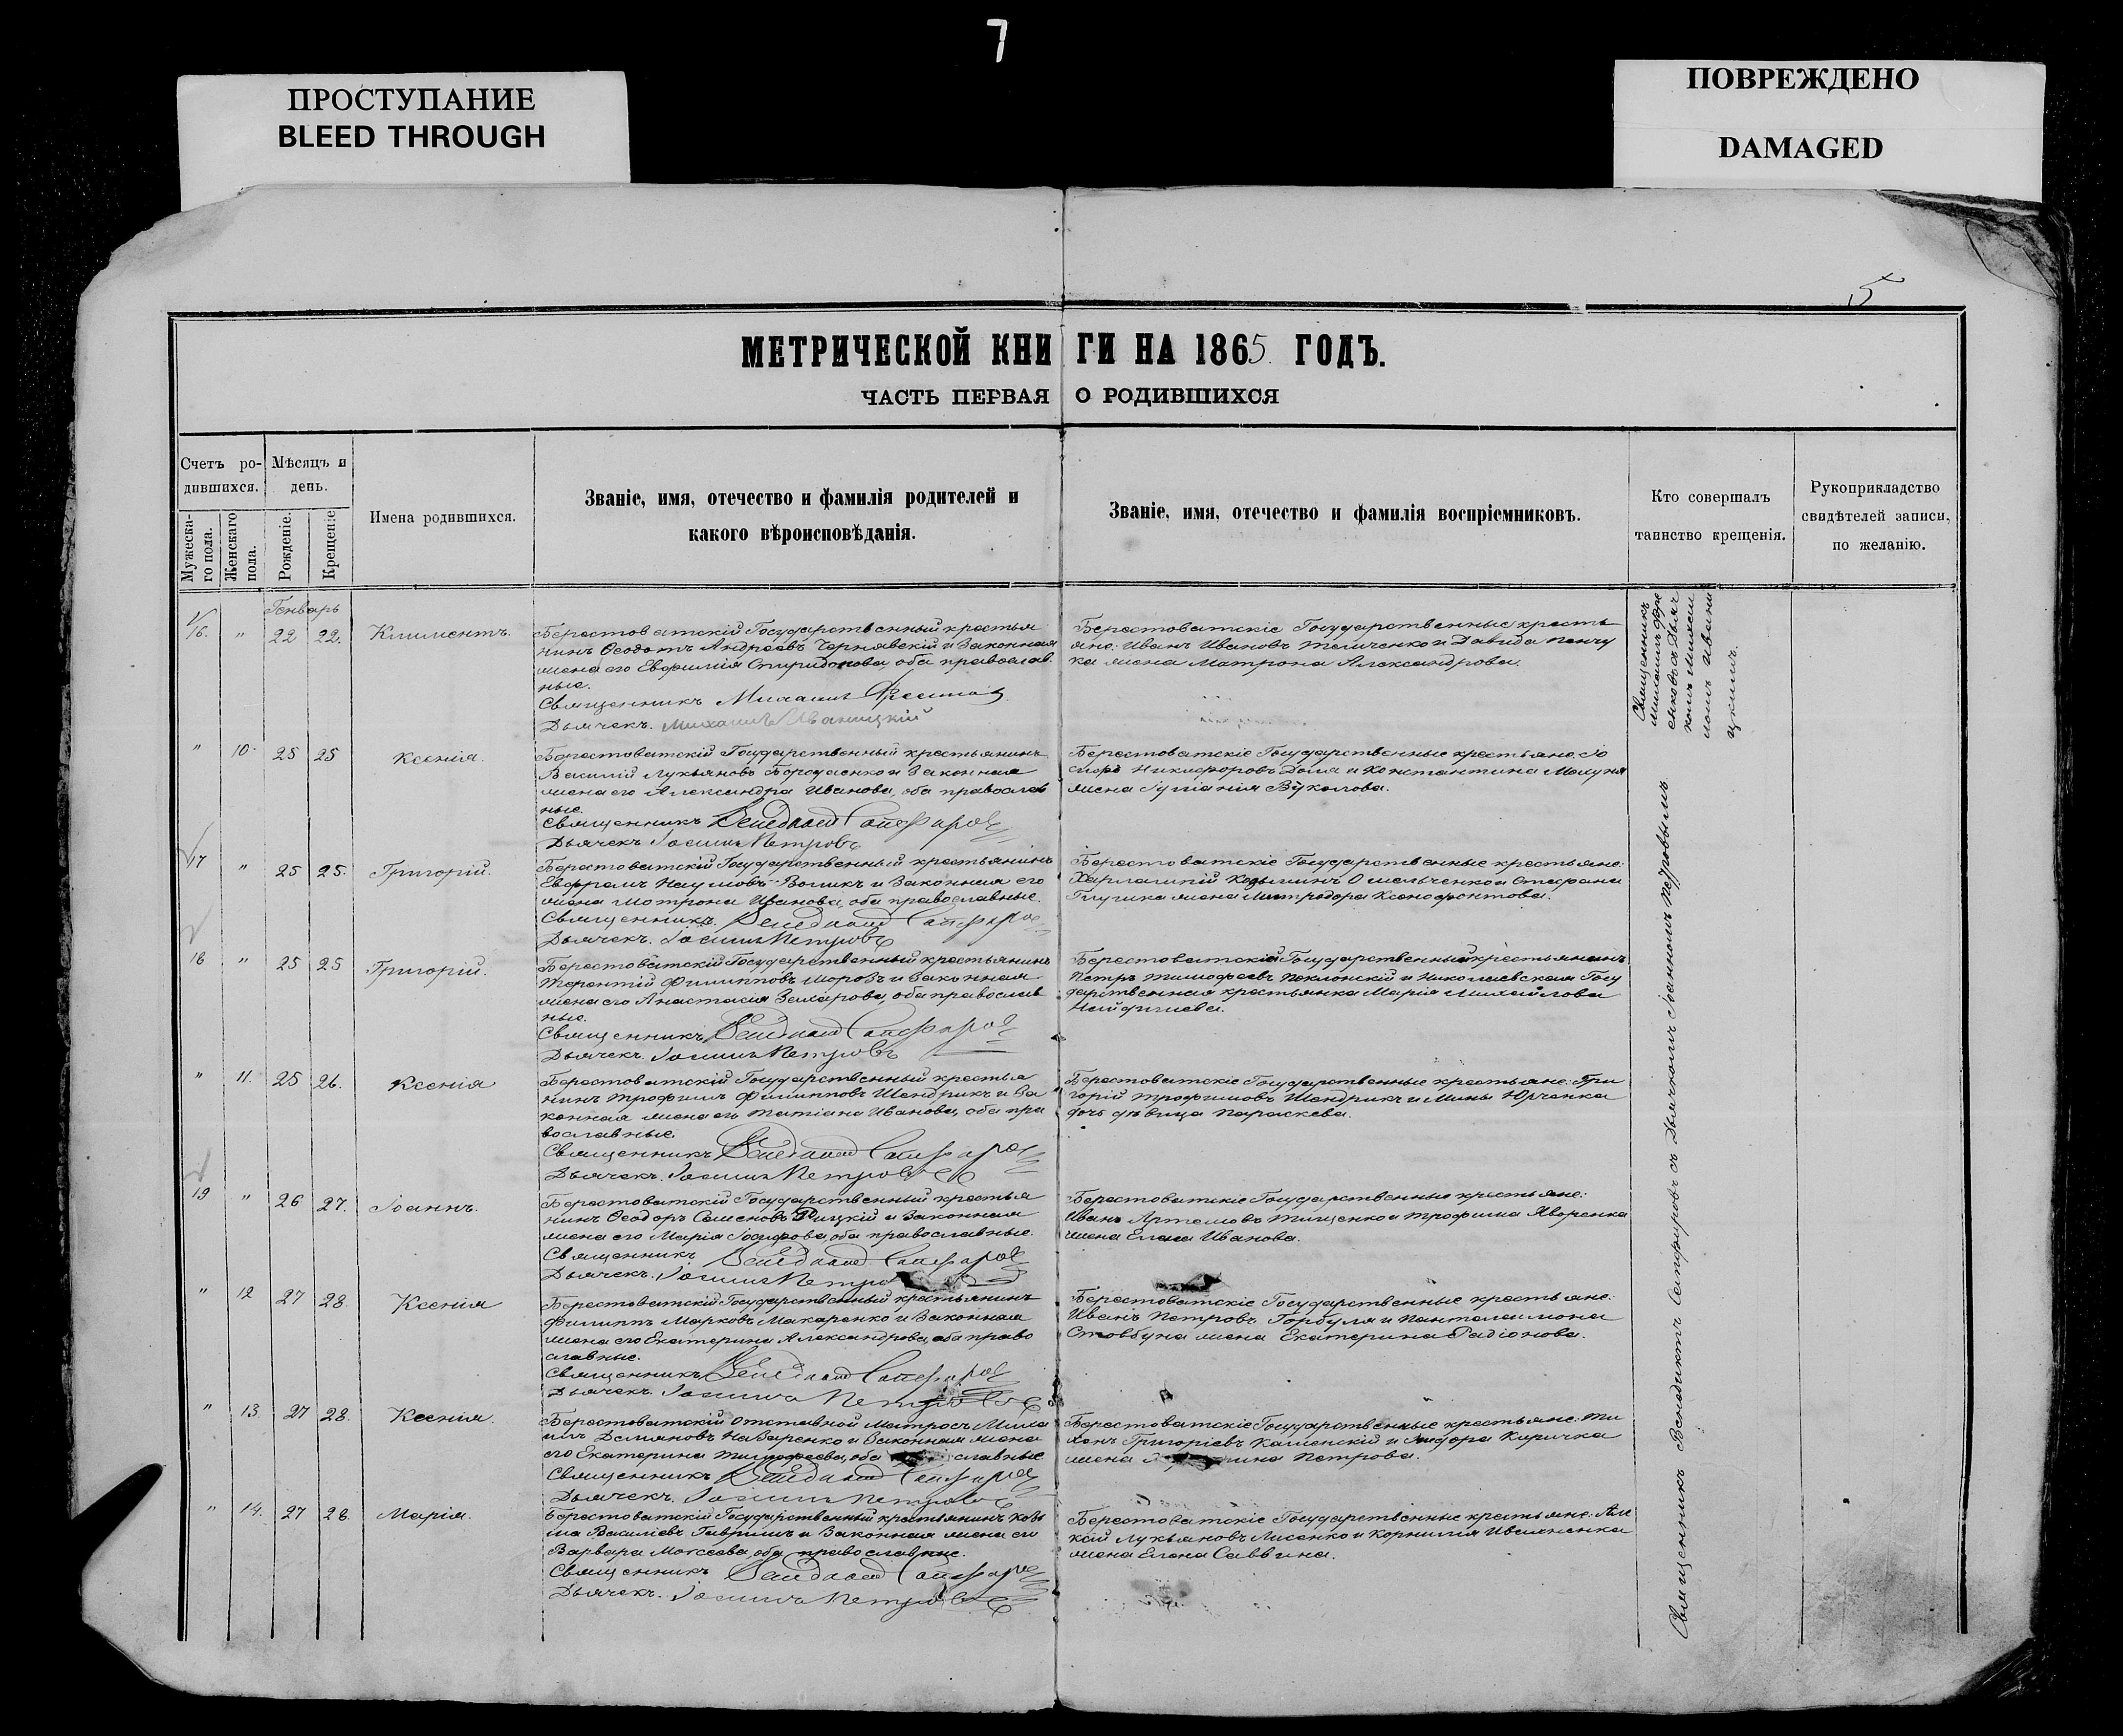 7
ПРОСТУПАНИЕ
BLEED THROUGH
ПОВРЕЖДЕНО
DAMAGED
5
МЕТРИЧЕСКОЙ КНИГИ НА 1865 ГОДЪ.
ЧАСТЬ ПЕРВАЯ О РОДИВШИХСЯ
Счетъ ро-
дившихся.
Мѣсяцъ и
день.
Мужеска-
го пола.
Женскаго
пола.
Рожденіе.
Крещеніе
Имена родившихся.
Званіе, имя, отечество и фамилія родителей и
какого вѣроисповѣданія.
Званіе, имя, отечество и фамилія воспріемниковъ.
Кто совершалъ
таинство крещенія.
Рукоприкладство
свидѣтелей записи,
по желанію.
Генварь
16. " 22 22. Климентъ.
Берестоватскій Государственный крестья
нинъ Ѳеодотъ Андреевъ Чернявскій и Законная
жена его Евфимія Спиридонова, оба православ
ные.
Священникъ Михаилъ
Дьячекъ. Михаилъ Иваницкій
Берестоватскіе Государственные кресть
яне: Иванъ Ивановъ Теличенко и Давида
ка жена Матрона Александрова.
" 10. 25 25 Ксенія.
Берестоватскій Государственный крестьянинъ
Василій Лукьяновъ и Законная
жена его Александра Иванова, оба православ
ные.
Священникъ Венедиктъ Сапфировъ
Дьячекъ Іоаннъ Петровъ
Берестоватскіе Государственные крестьяне: Іо
сифъ Никифоровъ и Константина
жена Іуліанія Вуколова.
17 " 25 25. Григорій.
Берестоватскій Государственный крестьянинъ
Ефремъ Наумовъ Воликъ и Законная его
жена Мотрона Иванова, оба православные.
Священникъ. Венедиктъ Сапфировъ
Дьячекъ. Іоаннъ Петровъ
Берестоватскіе Государственные крестьяне:
Харлампій Козьминъ Омельченко и Стефана
жена Митродора Ксенофонтова.
18 " 25 25 Григорій.
Берестоватскій Государственный крестьянинъ
Терентій Филипповъ Морозъ и Законная
жена его Анастасія Захарова, оба православ
ные.
Священникъ Венедиктъ Сапфировъ
Дьячекъ. Іоаннъ Петровъ
Берестоватскій Государственный крестьянинъ
Петръ Тимофеевъ и Николаевская Госу
дарственная крестьянка Марія Михайлова
" 11. 25 26. Ксенія
Берестоватскій Государственный крестья
нинъ Трофимъ Филипповъ Шендрикъ и За
конная жена его Татіана Иванова, оба пра
вославные.
Священникъ Венедиктъ Сапфировъ
Дьячекъ. Іоаннъ Петровъ
Берестоватскіе Государственные крестьяне: Гри
горій Трофимовъ Шендрикъ и Мины Юрченка
дочь дѣвица Параскева.
19 " 26 27. Іоаннъ.
Берестоватскій Государственный крестья
нинъ Ѳеодоръ Семеновъ и Законная
жена его Марія Іосифова, оба православные.
Священникъ Венедиктъ Сапфировъ
Дьячекъ. Іоаннъ Петро
Берестоватскіе Государственные крестьяне:
Иванъ Артемовъ Тищенко и Трофима Яворенка
жена Елена Иванова.
" 12 27 28. Ксенія
Берестоватскій Государственный крестьянинъ
Филиппъ Марковъ Макаренко и Законная
жена его Екатерина Александрова, оба право
славные.
Священникъ Венедиктъ Сапфировъ
Дьячекъ. Іоаннъ Петровъ
Берестоватскіе Государственные крестьяне:
Иванъ Петровъ Горбуля и Пантелеимона
Стовбуна жена Екатерина Радіонова.
" 13. 27 28. Ксенія.
Берестоватскій отставной Матросъ Миха
илъ Деміановъ Назаренко и Законная жена
его Екатерина Тимофеева, оба славные
Священникъ Венедиктъ Сапфировъ
Дьячекъ. Іоаннъ Петровъ
Берестоватскіе Государственные крестьяне: Ти
хонъ Григоріевъ Каменскій и Киричка
жена Петрова.
" 14. 27 28. Марія.
Берестоватскій Государственный крестьянинъ Козь
ма Василіевъ Гавришъ и Законная жена его
Варвара Моисеева, оба православные.
Священникъ Венедиктъ Сапфировъ
Дьячекъ. Іоаннъ Петровъ
Берестоватскіе Государственные крестьяне:
Лукьяновъ Лисенко и Корнилія
жена Елена Саввина.
Священникъ
съ Дьяч
комъ Михаи
ломъ Ивани
цкимъ.
Священникъ Венедиктъ Сапфировъ съ Дьячкомъ Іоанномъ Петровымъ